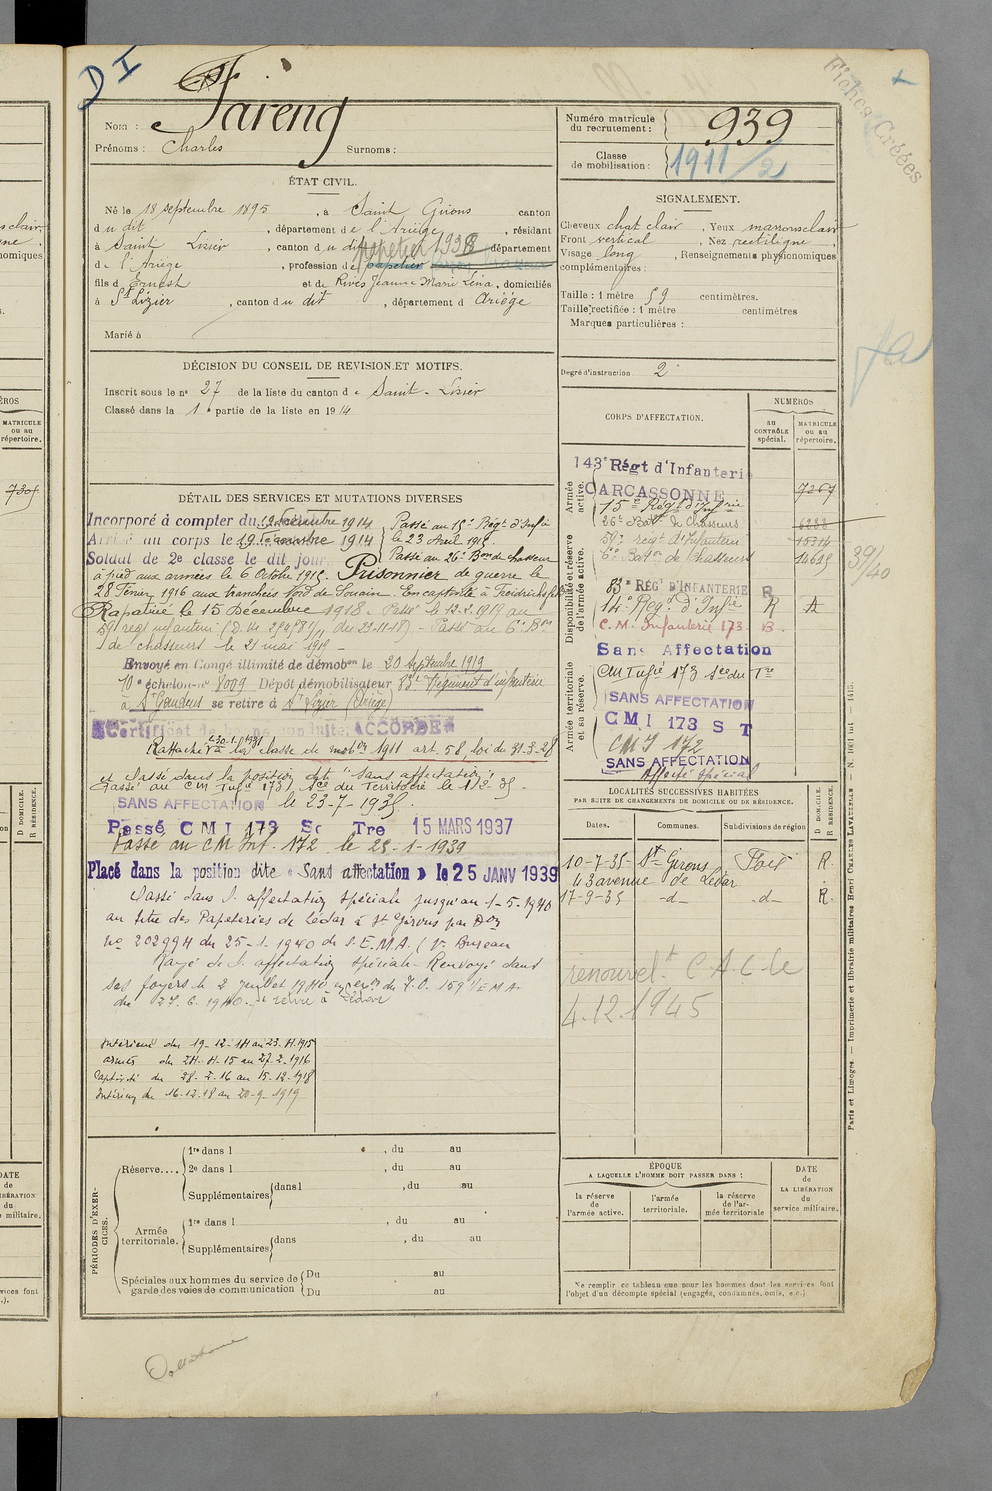 DI
Fiches Créées
Nom : Fareng
Prénoms : Charles Surnoms :
Numéro matricule du recrutement : 939
Classe de mobilisation : 1911/2
ÉTAT CIVIL.
Né le 18 septembre 1895, à Saint Girons canton
du dit, département de l'Ariège, résidant
à Saint Lizier, canton du dit papetier 1938 département
de l'Ariège, profession de papetier
fils d Ernest et de Rives Jeanne Marie Léna, domiciliés
à St Lizier, canton du dit, département d Ariège
Marié à
SIGNALEMENT.
Cheveux chat clair, Yeux marrons clair
Front vertical, Nez rectiligne
Visage long, Renseignements physionomiques
complémentaires :
Taille : 1 mètre 59 centimètres.
Taille rectifiée : 1 mètre centimètres
Marques particulières :
Degré d'instruction 2
DÉCISION DU CONSEIL DE REVISION ET MOTIFS.
Inscrit sous le no 27 de la liste du canton de Saint-Lizier
Classé dans la 1e partie de la liste en 1914
CORPS D'AFFECTATION.
NUMÉROS
au CONTRÔLE spécial.
MATRICULE ou au répertoire.
Armée active.
143e Régt d'Infanterie
CARCASSONNE 7267
15e Régt d'Infrie
26e Bon de Chasseurs 6233
59e régt d'Infanterie 15314
6e Baton de Chasseurs 14615
39/40
Disponibilité et réserve de l'armée active.
83e RÉGt D'INFANTERIE R
14e Régt d'Infie R A
C.M. Infanterie 173 R.
Sans Affectation
Armée territoriale et sa réserve.
CM Infie 173 Sce du Tre
SANS AFFECTATION
CMI 173 S T
CMI 172
SANS AFFECTATION
Affecté Spécial
DÉTAIL DES SERVICES ET MUTATIONS DIVERSES
Incorporé à compter du 19 décembre 1914
Arrivé au corps le 19 décembre 1914
Soldat de 2e classe le dit jour
Passé au 15e Régt d'Infie
le 23 Avril 1915.
Passé au 26e Bon de chasseurs
à pied aux armées le 6 Octobre 1915. Prisonnier de guerre le
28 Février 1916 aux tranchées Nord de Souain. En captivité à Freidrichsfeld
Rapatrié le 15 Décembre 1918. Passé le 12.2.1919 au
59e régt infanterie du 23-11-18) - Passé au 6e Bon
de chasseurs le 21 mai 1919 -
Envoyé en Congé illimité de démobon le 20 septembre 1919
10e échelon no 8009 Dépôt démobilisateur 83e Régiment d'infanterie
à St Gaudens se retire à St Lizier (Ariège)
Certificat de bonne conduite ACCORDÉ
Rattaché à la classe de mobon 1911 art. 58, loi du 31-3-28
et classé dans la position dite "sans affectation".
Passé au CM Infie 173, Sce du Territoire le
SANS AFFECTATION le 23-7-1935.
Passé CMI 173 Sc Tre 15 MARS 1937
Passé au CM Inf. 172 le 25-1-1939
Placé dans la position dite « Sans affectation » le 25 JANV 1939
Classé dans l'affectation spéciale jusqu'au 1-5-1940
au titre des Papeteries de Lédar à St Girons par Don
no 202994 du 25-1-1940 du S.E.M.A. (1er Bureau
Rayé de l'affectation spéciale. Renvoyé dans
ses foyers le 2 juillet 1940 en exon du T.O. 159 1/EMA
du 27.6.1940. se retire à Lédar
Intérieur du 19-12-14 au 23-4-1915
armées du 24-4-15 au 27-2-1916
Captivité du 28-2-16 au 15-12-1918
Intérieur du 16-12-18 au 20-9-1919
LOCALITÉS SUCCESSIVES HABITÉES
PAR SUITE DE CHANGEMENTS DE DOMICILE OU DE RÉSIDENCE.
D DOMICILE. R RÉSIDENCE.
Dates. Communes. Subdivisions de région
10-7-35 St Girons Foix R.
43 avenue de Lédar
17-9-35 -d- -d- R.
renouvelt C.A.C. le
4.12.1945
PÉRIODES D'EXERCICES.
Réserve.... 1re dans l , du au
2e dans l , du au
Supplémentaires dans l , du au
Armée territoriale. 1re dans l , du au
Supplémentaires dans , du au
Spéciales aux hommes du service de garde des voies de communication Du au
Du au
ÉPOQUE
A LAQUELLE L'HOMME DOIT PASSER DANS :
la réserve de l'armée active.
l'armée territoriale.
la réserve de l'armée territoriale
DATE de LA LIBÉRATION du service militaire.
Ne remplir ce tableau que pour les hommes dont les services font
l'objet d'un décompte spécial (engagés, condamnés, omis, etc.)
Paris et Limoges. — Imprimerie et librairie militaires Henri CHARLES-LAVAUZELLE